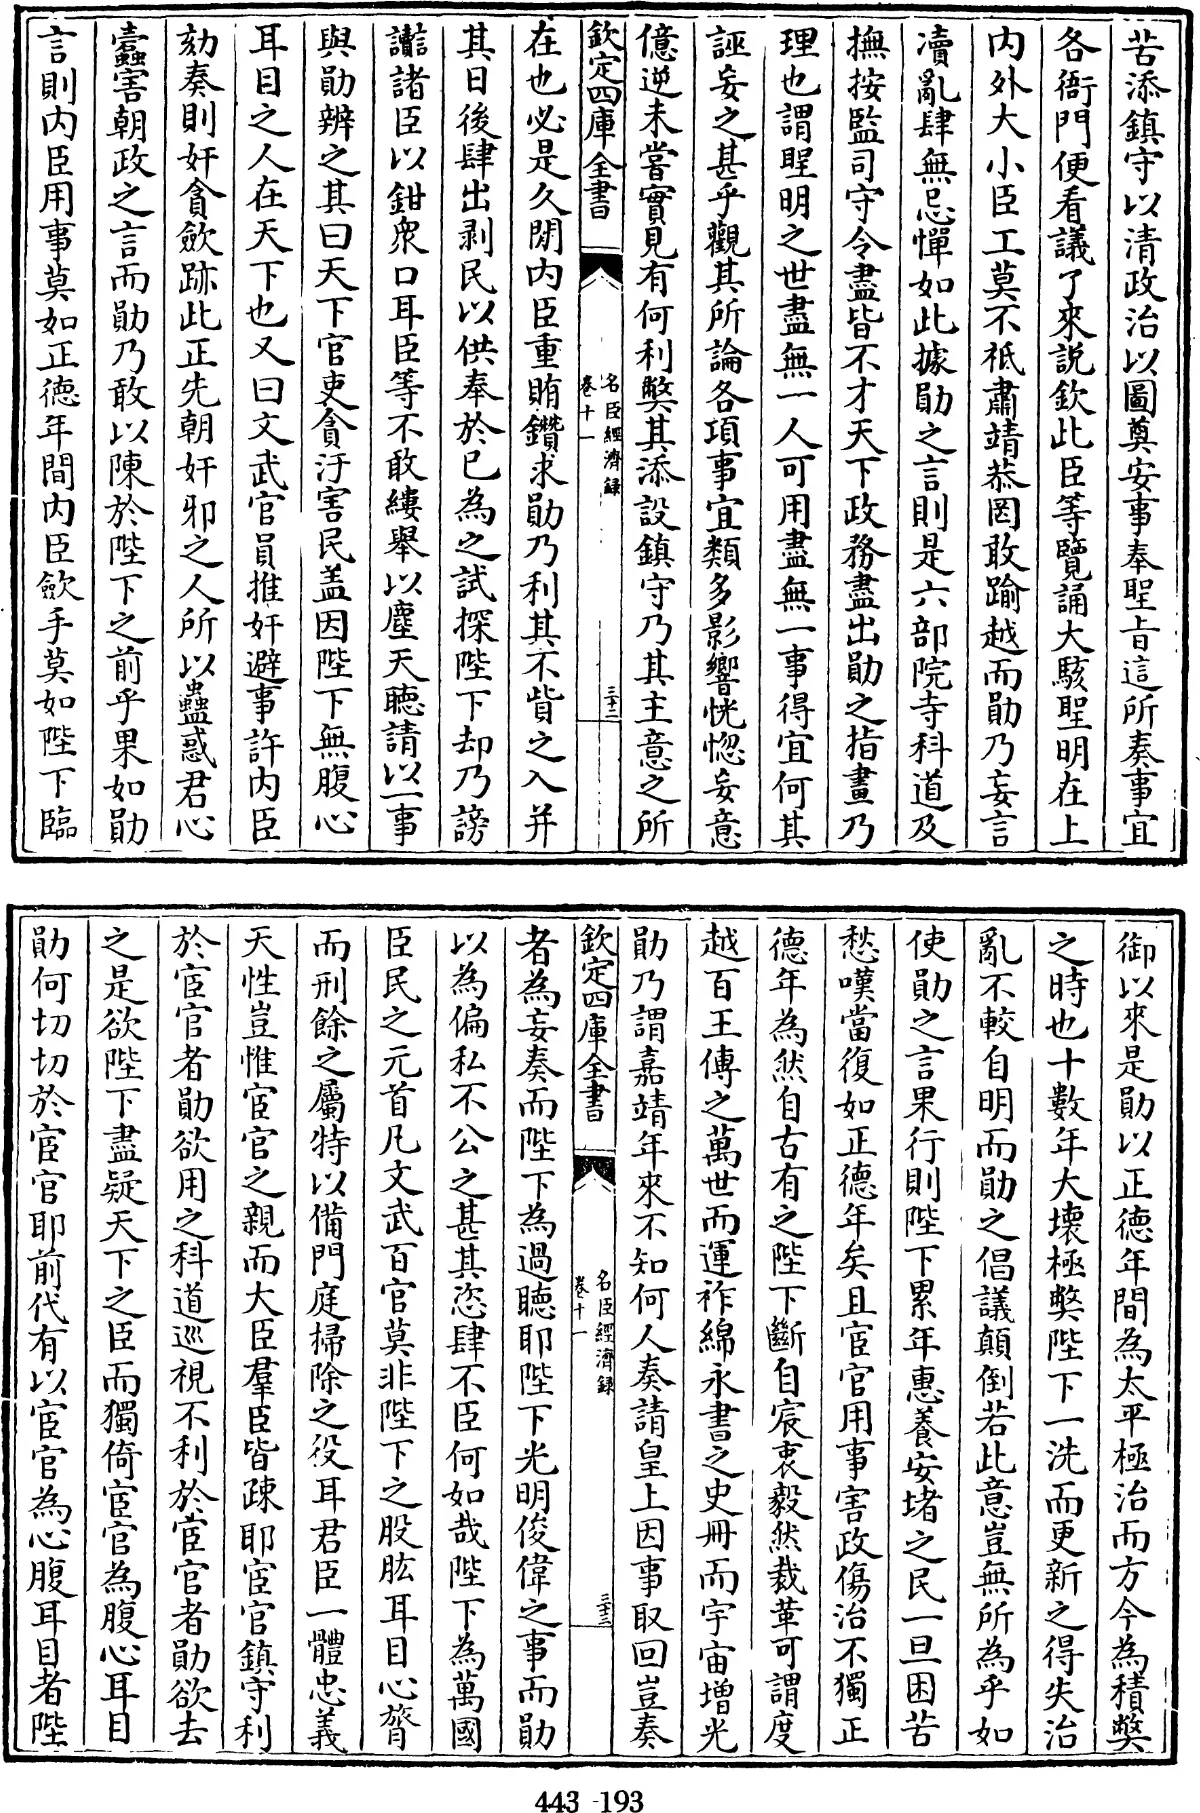 苦添鎮守以清政治以圖奠安事奉聖旨這所奏事宜
各衙門便看議了來說欽此臣等覽誦大駭聖明在上
内外大小臣工莫不祗肅靖恭罔敢踰越而勛乃妄言
凟亂肆無忌憚如此據勛之言則是六部院寺科道及
撫按監司守令盡皆不才天下政務盡出勛之指畫乃
理也謂聖明之世盡無一人可用盡無一事得宜何其
誣妄之甚乎觀其所論各項事宜類多影響恍惚妄意
億逆未嘗實見有何利弊其添設鎮守乃其主意之所
欽定四庫全書
名臣經濟録
卷十一
三十二
在也必是久閒内臣重賄鑽求勛乃利其不貲之入并
其日後肆出剥民以供奉於已為之試探陛下却乃謗
讟諸臣以鉗衆口耳臣等不敢縷舉以塵天聽請以一事
與勛辨之其曰天下官吏貪汙害民盖因陛下無腹心
耳目之人在天下也又曰文武官員推奸避事許内臣
劾奏則奸貪歛跡此正先朝奸邪之人所以蠱惑君心
蠧害朝政之言而勛乃敢以陳於陛下之前乎果如勛
言則内臣用事莫如正德年間内臣歛手莫如陛下臨
御以來是勛以正德年間為太平極治而方今為積弊
之時也十數年大壊極弊陛下一洗而更新之得失治
亂不較自明而勛之倡議顛倒若此意豈無所為乎如
使勛之言果行則陛下累年惠養安堵之民一旦困苦
愁嘆當復如正德年矣且宦官用事害政傷治不獨正
德年為然自古有之陛下斷自宸衷毅然裁革可謂度
越百王傳之萬世而運祚綿永書之史冊而宇宙增光
勛乃謂嘉靖年來不知何人奏請皇上因事取回豈奏
欽定四庫全書
名臣經濟録
卷十一
三十三
者為妄奏而陛下為過聽耶陛下光明俊偉之事而勛
以為偏私不公之甚其恣肆不臣何如哉陛下為萬國
臣民之元首凡文武百官莫非陛下之股肱耳目心膂
而刑餘之屬特以備門庭掃除之役耳君臣一體忠義
天性豈惟宦官之親而大臣羣臣皆疎耶宦官鎮守利
於宦官者勛欲用之科道巡視不利於宦官者勛欲去
之是欲陛下盡疑天下之臣而獨倚宦官為腹心耳目
勛何切切於宦官耶前代有以宦官為心腹耳目者陛
443-193